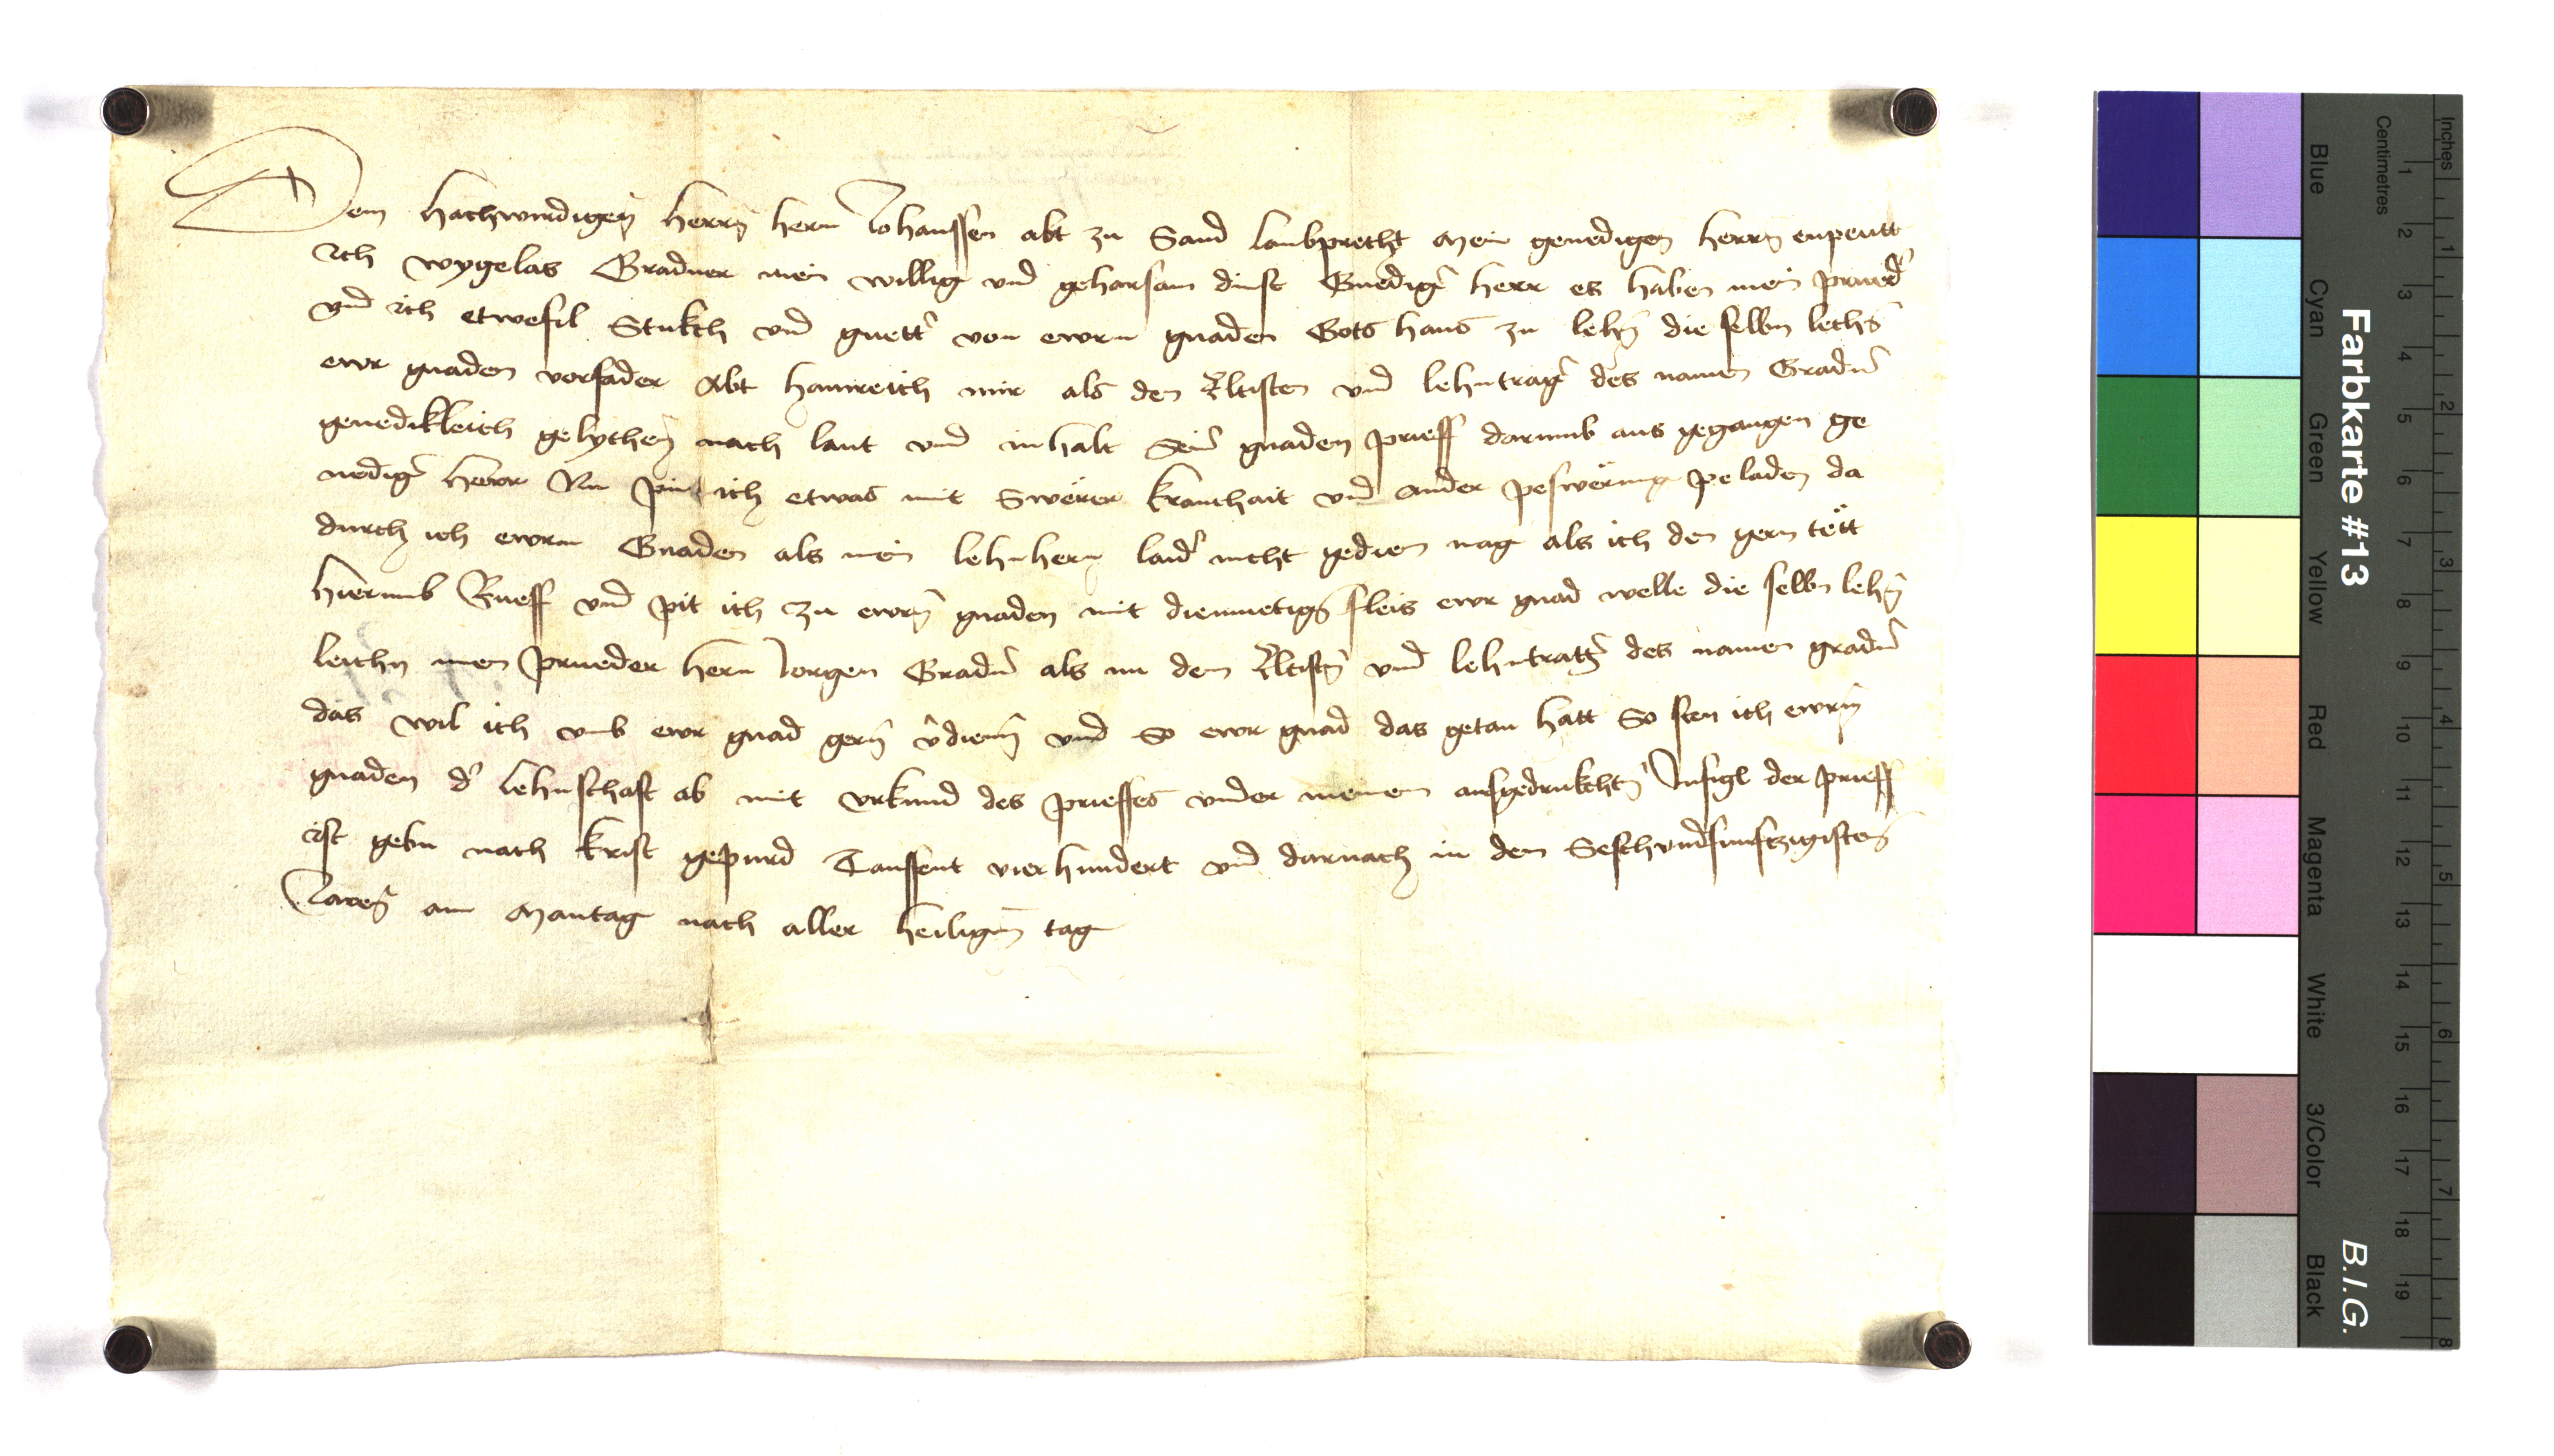 Dem hachwirdigen̄ herrn̄ hern Johanssen abt zu Sand lambprecht mein genedigen herrn̄ enpeutt
Ich wygelas Gradner mein willig vnd geharsam dinst Gnedigˀ herr es haben mein pruedˀ
vnd ich etwefil Stukch vnd guettˀ von ewrn gnaden Gots haus zu lehn̄ die selbn lechn̄
ewr gnaden vorfader Abt hainreich mir als den Eltisten vnd lehntragˀ des namen Gradnˀ
genedikleich gelychen̄ nach laut vnd inhalt seinˀ gnaden prieff darumb aus gegangen ge
nedigˀ herr Nu pin ich etwas mit Swërer kranchait vnd ander peswërung peladen da
durch ich ewrn Gnaden als mein lehnhern laidˀ nicht gedien mag als ich den gern tëtt
hierumb Rueff vnd pit ich zu ewrn̄ gnaden mit diemuetign̄ fleis ewr gnad welle die selbn lehn̄
leichn mein prueder hern Jorgen Gradnˀ als nu dem Eltistn̄ vnd lehntragˀ des namen gradnˀ
das wil ich vmb ewr gnad gern̄ vˀdienn̄ vnd so ewr gnad das getan hatt So sten ich ewrn̄
gnaden dˀ lehnschaft ab mit vrkund des prieffes vnder meinem aufgedrukchtn̄ Insigl der prieff
ist gebn nach krist gepurd Taussent vierhundert vnd darnach in dem Sechsvndfunftzigisten
Jaren̄ am Mantag nach aller heiligen tag
Farbkarte #13
B.I.G.
Inches
Centimetres
1 2 3 4 5 6 7 8 9 10 11 12 13 14 15 16 17 18 19
1 2 3 4 5 6 7 8
Blue
Cyan
Green
Yellow
Red
Magenta
White
3/Color
Black